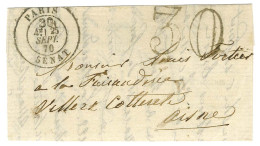 PARIS
SEPT.
70
SENAT
30
Monsieur Louis
a la Faisanderie
Villers Cotterets
Aisne